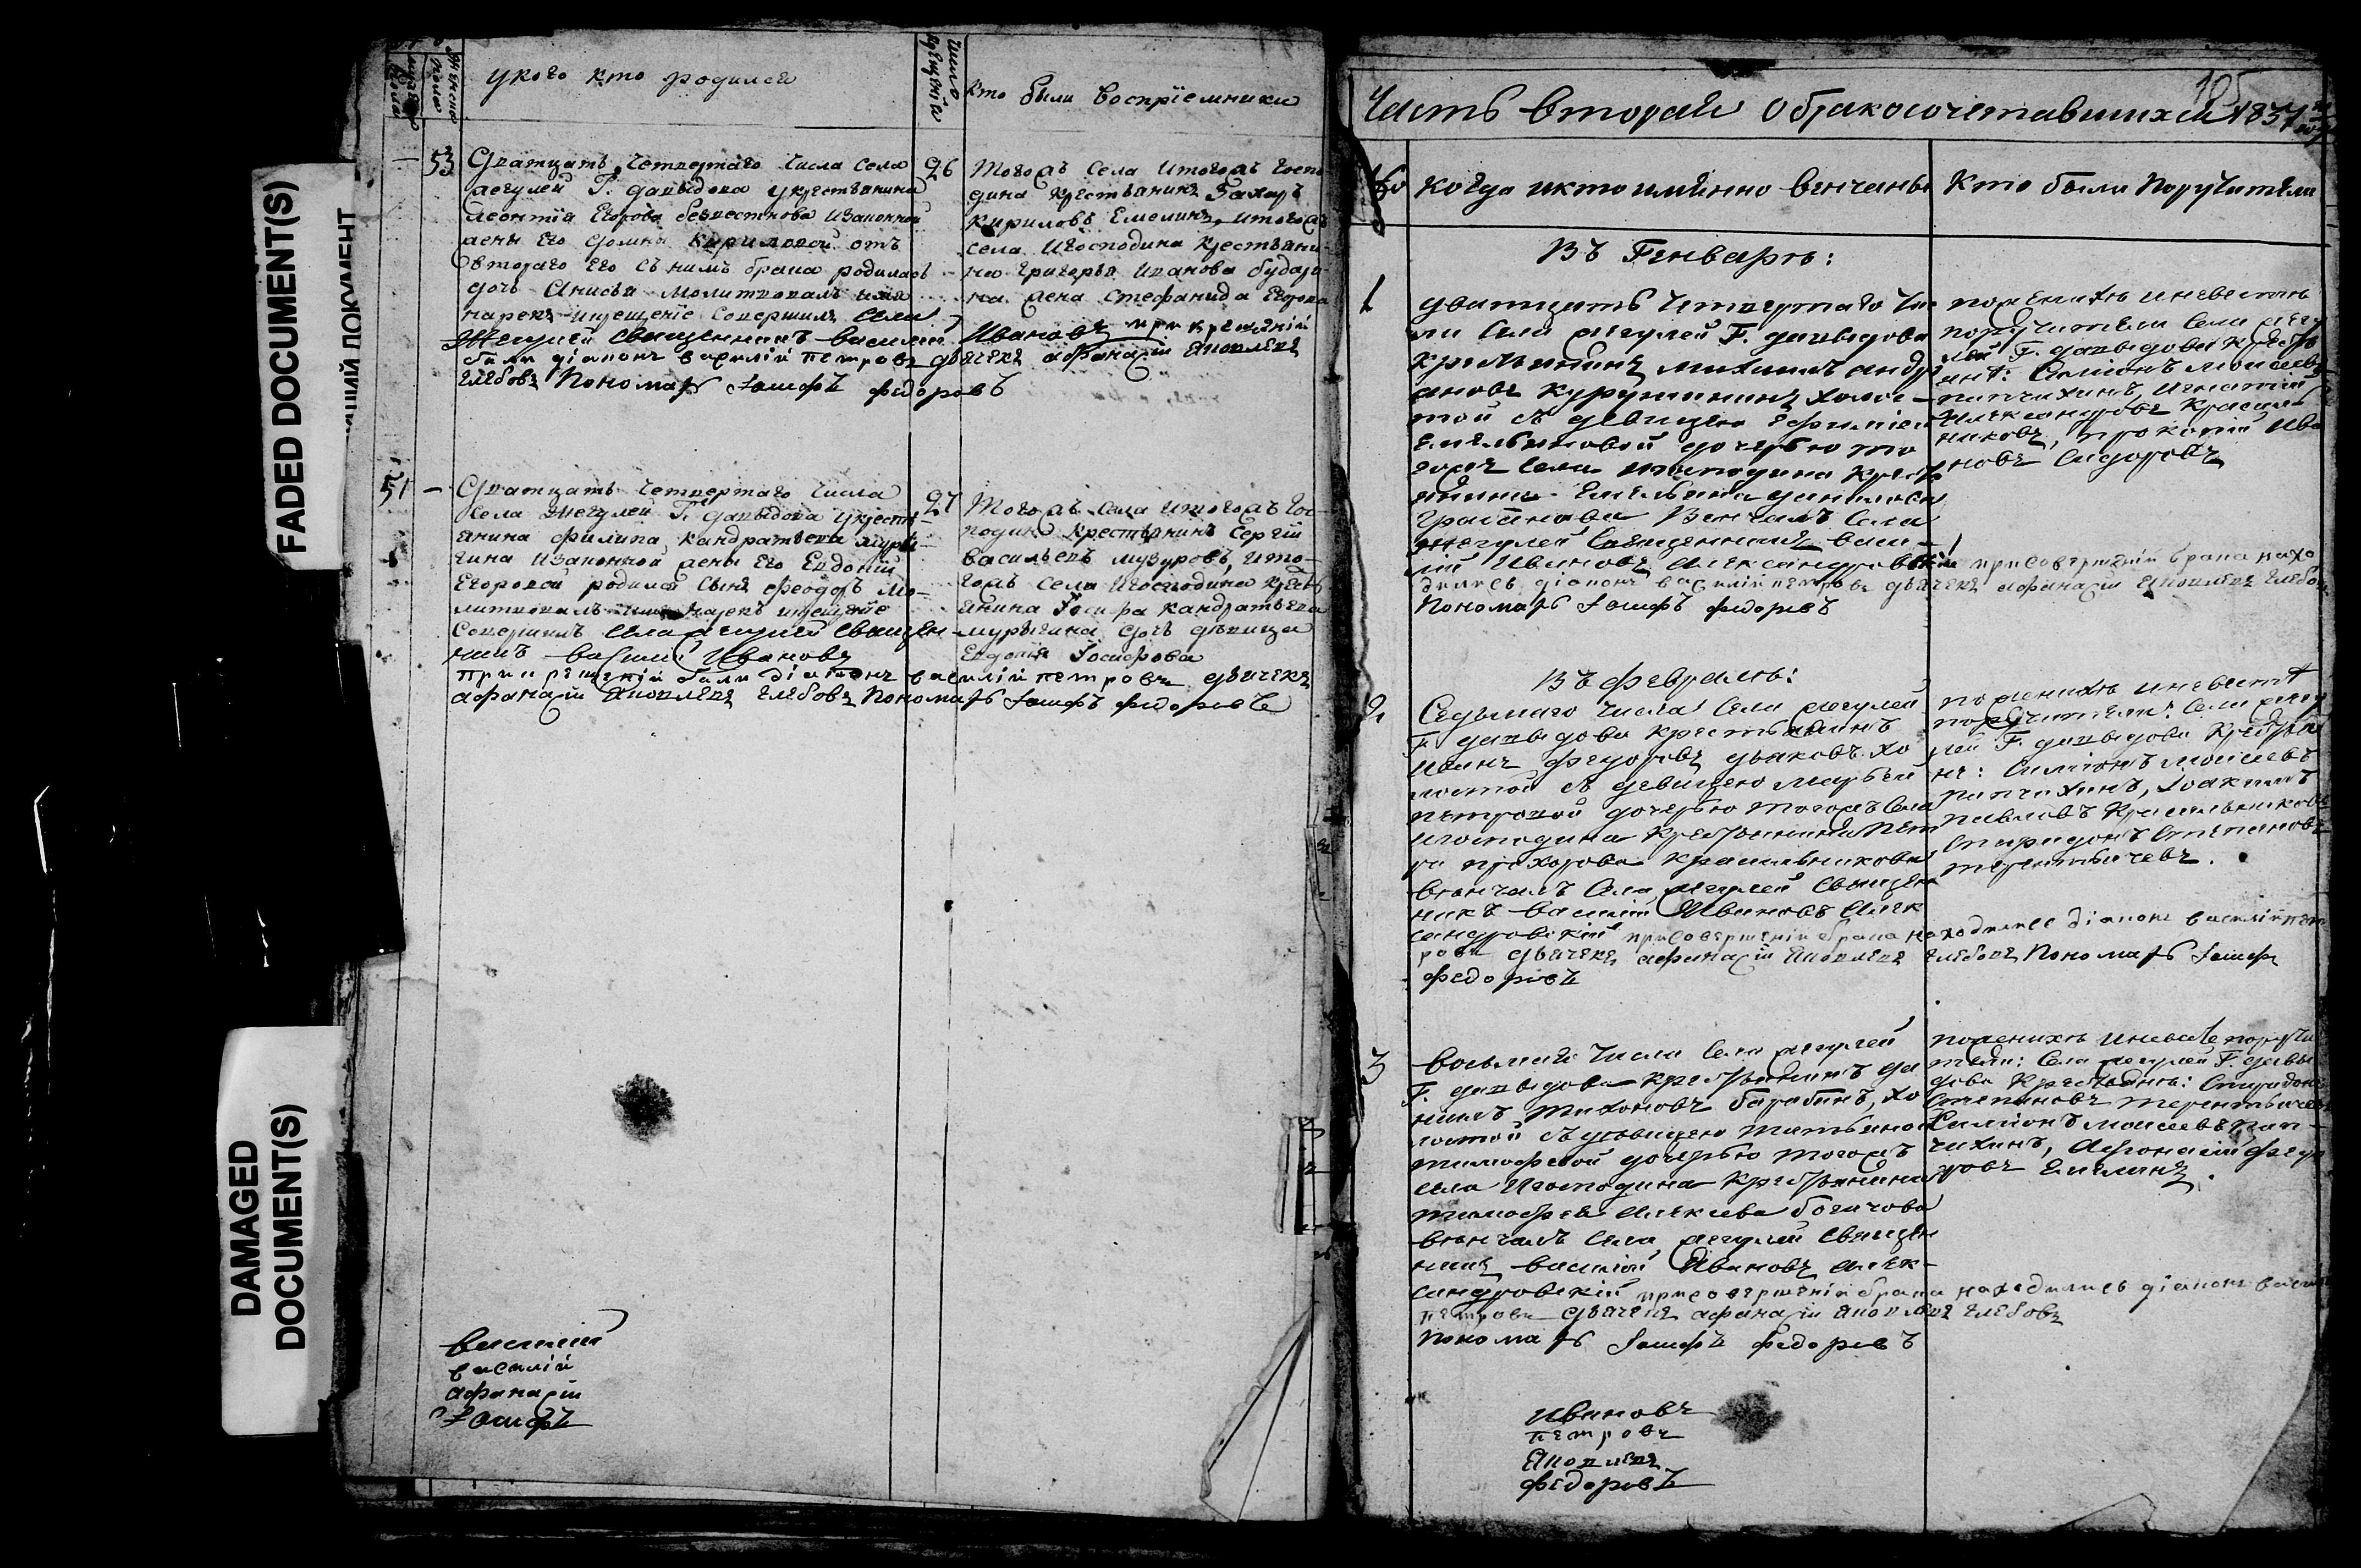 FADED DOCUMENT(S)
DAMAGED
DOCUMENT(S)
ДОКУМЕНТ
укого кто родился
Число крещенія
Кто были Воспріемники
— 53
Дватцать Четвертаго Числа Села
жегулей Г. давыдова укрестьянина
леонтія Егорова изаконной
жены Его Домны Кириловой отъ
втораго Его съ нимъ брака родилась
дочь Анисья Молитвовалъ имя
нарекъ икрещеніе Совершилъ Села
Жегулей Священникъ Василий Ивановъ при крещеніи
были діаконъ василій петровъ дьячекъ афанасіи Яковлевъ
глебовъ Пономарь Іосифъ федоровъ
26
Тогожъ Села Итогожъ Госпо
дина Крестьянинъ Захаръ
Кириловъ Емелинъ, итогожъ
села Игосподина Крестьяни-
на Григорья Иванова
на жена Стефанида Егорова
51 —
Дватцать Четвертаго Числа
Села Жегулей Г. Давыдова укресть-
янина Филипа Кандратьева муры
гина Изаконной жены Его Евдокіи
Егоровой родился Сынъ Феодоръ Мо-
литвовалъ имя нарекъ икрещеніе
Совершилъ Села жегулей Священ-
никъ Василий Ивановъ
при крещеніи были діаконъ василій петровъ дьячекъ
афанасіи Яковлевъ глебовъ Пономарь Іосифъ федоровъ
27
Тогожъ Села Итогожъ Гос-
подина Крестьянинъ Сергій
Васильевъ музуровъ, Ито-
гожъ села Игосподина Крест
янина Іосифа Кандратьева
мурыгина дочь девица
Евдокія Іосифова
Василий
василій
афанасіи
Іосифъ
105
Часть вторая О бракосочетавшихся 1831 го
когда икто имянно венчаны
Кто были Поручители
Въ Генваре:
1
дватцать Четвертаго Чис
ла Села жегулей Г. давыдова
крестьянинъ михаилъ андри
ановъ Курушинъ холос-
той съ девицею Ефиміею
Емельяновой дочерью то
гожъ Села игосподина Крест
янина Емельяна данилова
Венчалъ Села
Жегулей Священникъ Васи-
лій Ивановъ Александровскій присовершеніи брака нахо
дились діаконъ василій петровъ дьячекъ афанасіи Яковлевъ глебовъ
Пономарь Іосифъ федоровъ
пожениху иневесте
поручители Села жегу
лей Г. давыдова Крестья
яне: Симіонъ моисеевъ
папчихинъ, Игнатий
Александровъ Красиль-
никовъ, прокопій Ива
новъ Сидоровъ
Въ феврале:
2
Седьмаго Числа Села жегулей
Г. давыдова крестьянинъ
Иванъ Федоровъ дьяковъ хо
лостой съ девицею Марьей
петровой дочерью тогожъ Села
игосподина Крестьянина Пет
ра прохорова красильникова
венчалъ Села жегулей Священ
никъ Василій Ивановъ Алек
сандровскій присовершеніи брака находились діаконъ василій пет
ровъ дьячекъ афанасіи Яковлевъ глебовъ Пономарь Іосифъ
федоровъ
пожениху иневесте
поручители: Села жегу
лей Г. давыдова Крестья
не: Симіонъ моисеевъ
папчихинъ, Іоакимъ
павловъ Красильниковъ
Спиридонъ Степановъ
терентьичевъ.
3
Восьмаго Числа Села жегулей
Г. давыдова крестьянинъ да
нилъ тихоновъ барабинъ, хо
лостой съ девицею татьяной
тимофевой дочерью тогожъ
села Игосподина Крестьянина
тимофея Алексева богачова
венчалъ Села жегулей Священ
никъ Василій Ивановъ Алек-
сандровскій присовершеніи брака находились діаконъ васил
петровъ дьячекъ афанасіи Яковлевъ глебовъ
Пономарь Іосифъ федоровъ
пожениху иневесте поручи
тели: Села жегулей Г. давы
дова Крестьяне: Спиридонъ
Степановъ терентьичевъ
Симіонъ моисеевъ пап-
чихинъ, Афонасій федо
ровъ Емелинъ.
Ивановъ
петровъ
Яковлевъ
федоровъ